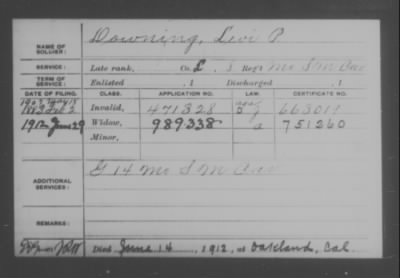 NAME OF SOLDIER: Downing, Levi P.
SERVICE: Late rank, Co. L, 3 Reg't Mo S M Cav
TERM OF SERVICE: Enlisted , 1 Discharged , 1
DATE OF FILING. CLASS. APPLICATION NO. LAW. CERTIFICATE NO.
1907 May 18
1883 Feb 2 Invalid, 471328 663019
1912 June 29 Widow, 989.338 a 751260
Minor,
ADDITIONAL SERVICES: G 14 Mo S M Cav
REMARKS:
Died June 14, 1912, at Oakland, Cal.